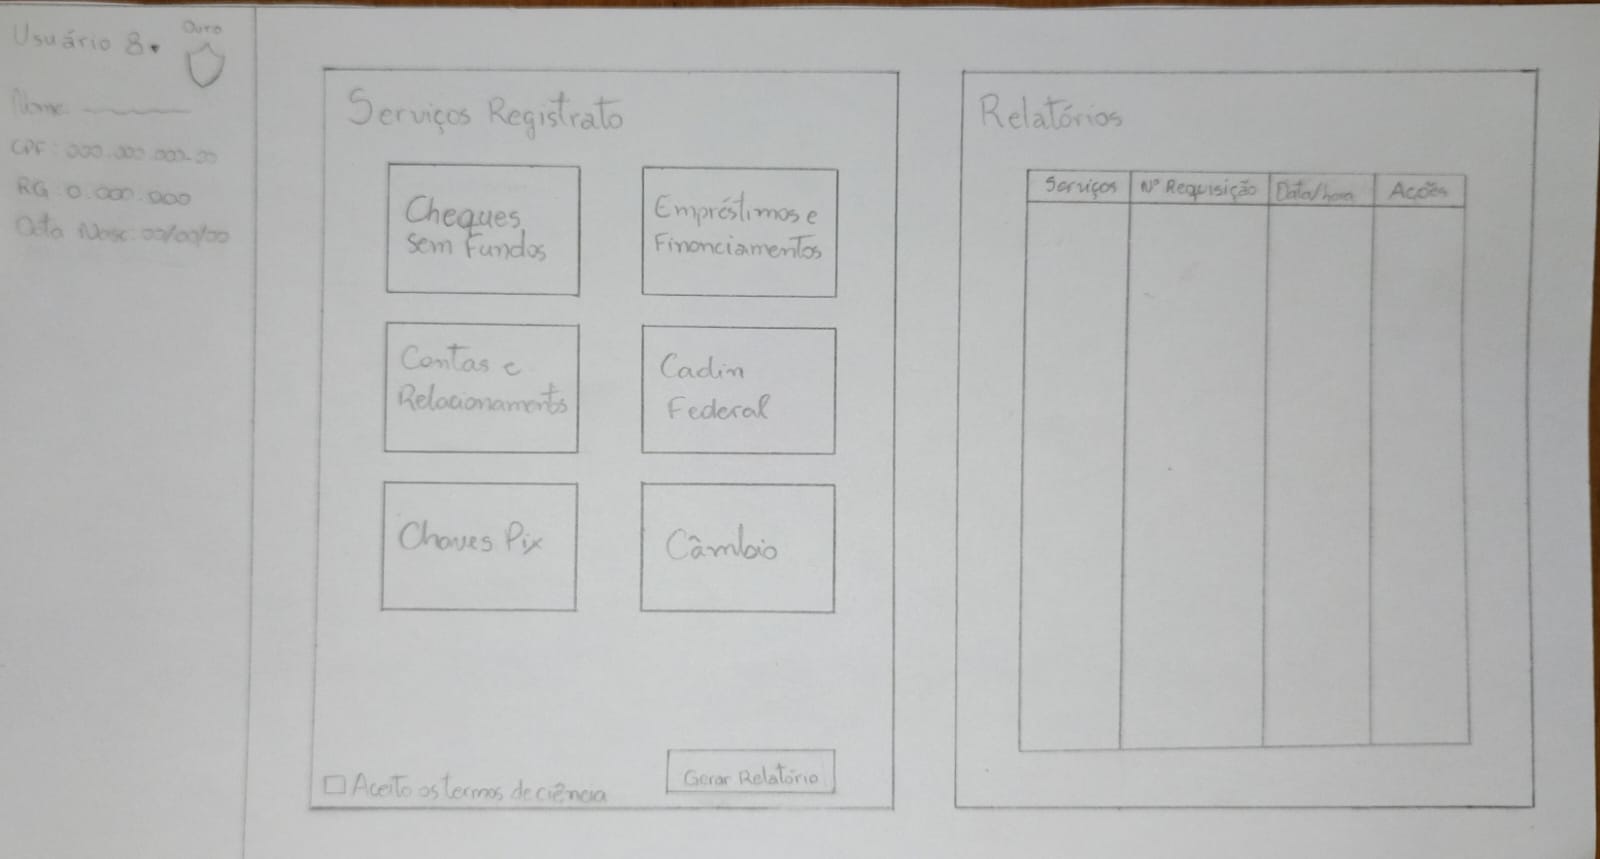 Usuário 8.
Ouro
Nome
CPF: 000.000.000-00
RG: 0.000.000
Data Nasc: 00/00/00
Serviços Registrato
Cheques
sem Fundos
Empréstimos e
Financiamentos
Contas e
Relacionamento
Cadin
Federal
Chaves Pix
Câmbio
Aceito os termos de ciência
Gerar Relatório
Relatórios
Serviços
Nº Requisição
Data/hora
Ações